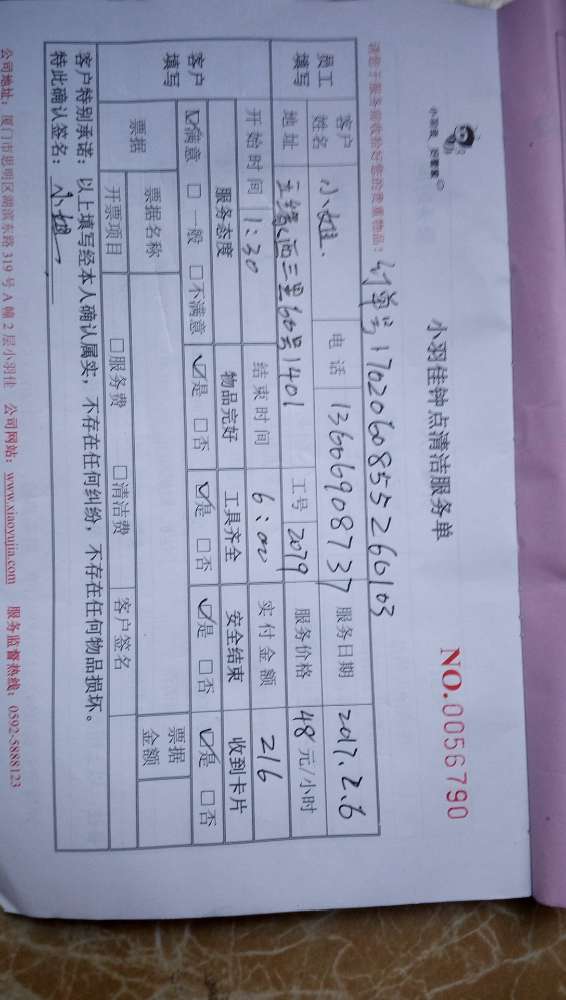 小羽佳 好管家
小羽佳钟点清洁服务单
NO.0056790
请您于服务前收拾好您的贵重物品: 订单号1702060855260103
员工填写 客户姓名 小姐. 电话 13606908737 服务日期 2017.2.6
地址 西三里60号1401 工号 2079 服务价格 48元/小时
开始时间 1:30 结束时间 6:00 实付金额 216
客户填写 服务态度 物品完好 工具齐全 安全结束 收到卡片
☑满意 □一般 □不满意 ☑是 □否 ☑是 □否 ☑是 □否 ☑是 □否
票据 票据名称 票据金额
开票项目 □服务费 □清洁费 客户签名
客户特别承诺:以上填写经本人确认属实,不存在任何纠纷,不存在任何物品损坏。
特此确认签名: 小姐
公司地址:厦门市思明区湖滨东路319号A幢2层小羽佳 公司网站:www.xiaoyujia.com 服务监督热线:0592-5888123